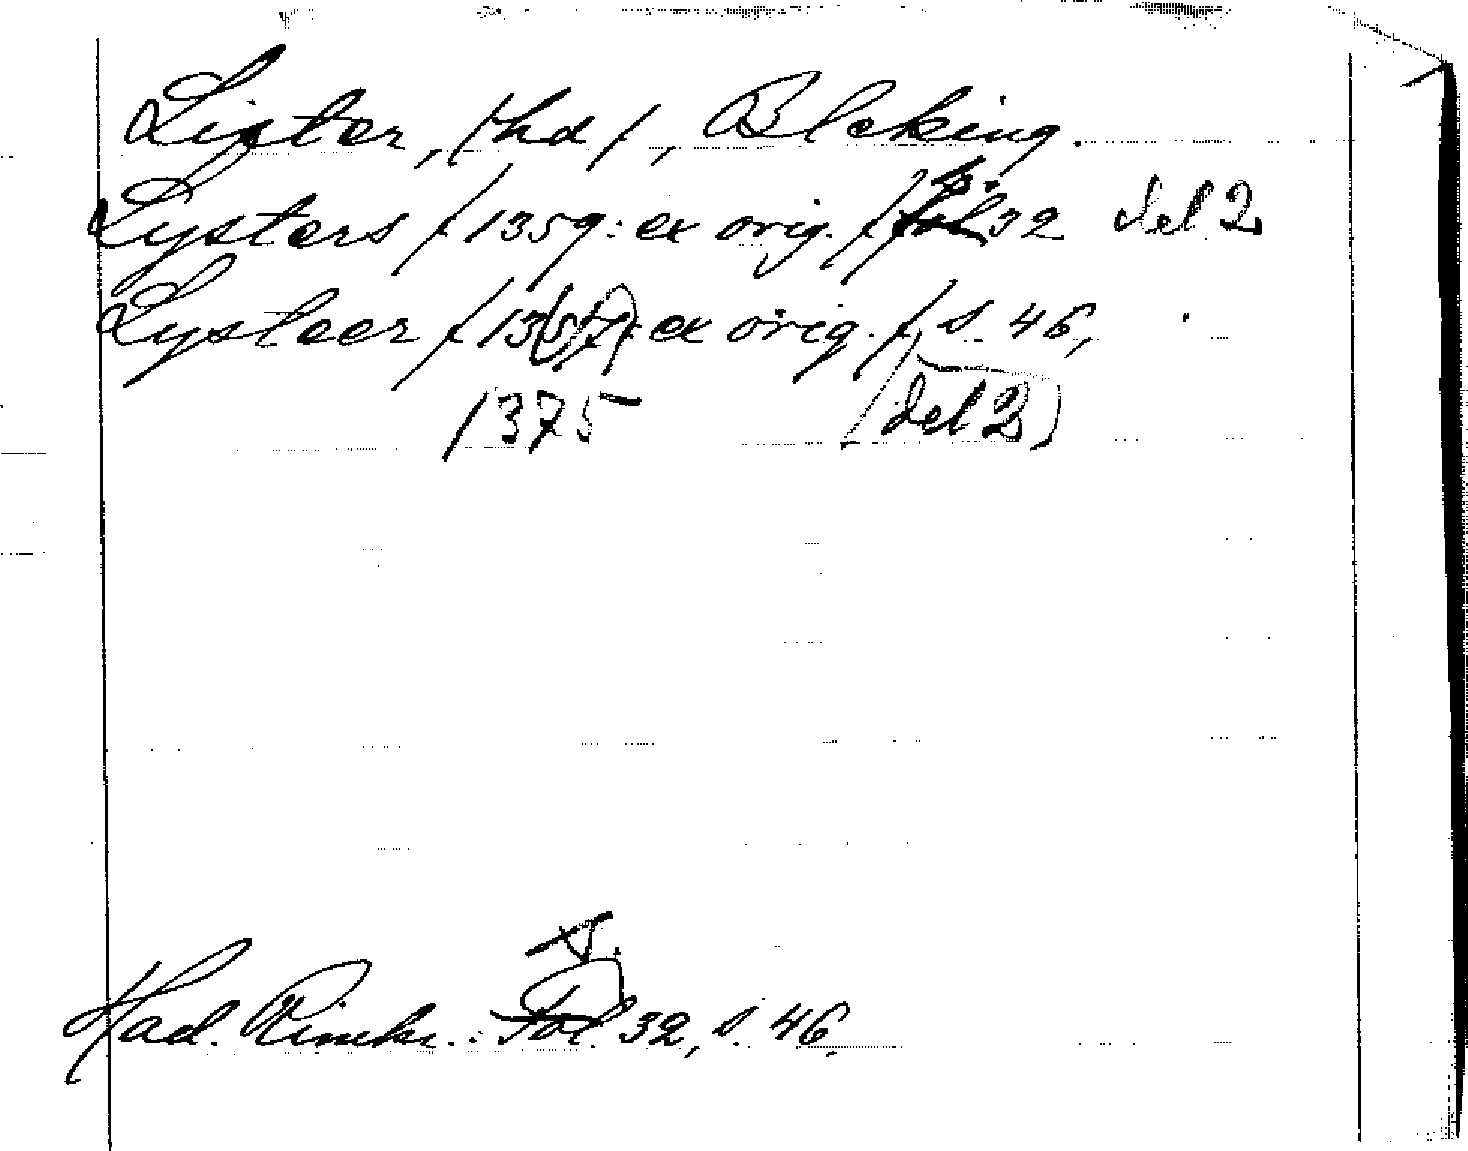 Lister, /hd/, Bleking.
Lysters /1359: ex orig./ s. 32 del 2
Lysteer /13 : ex orig./, s. 46,
1375 (del 2)
Had. Rimkr.: 32, s. 46.